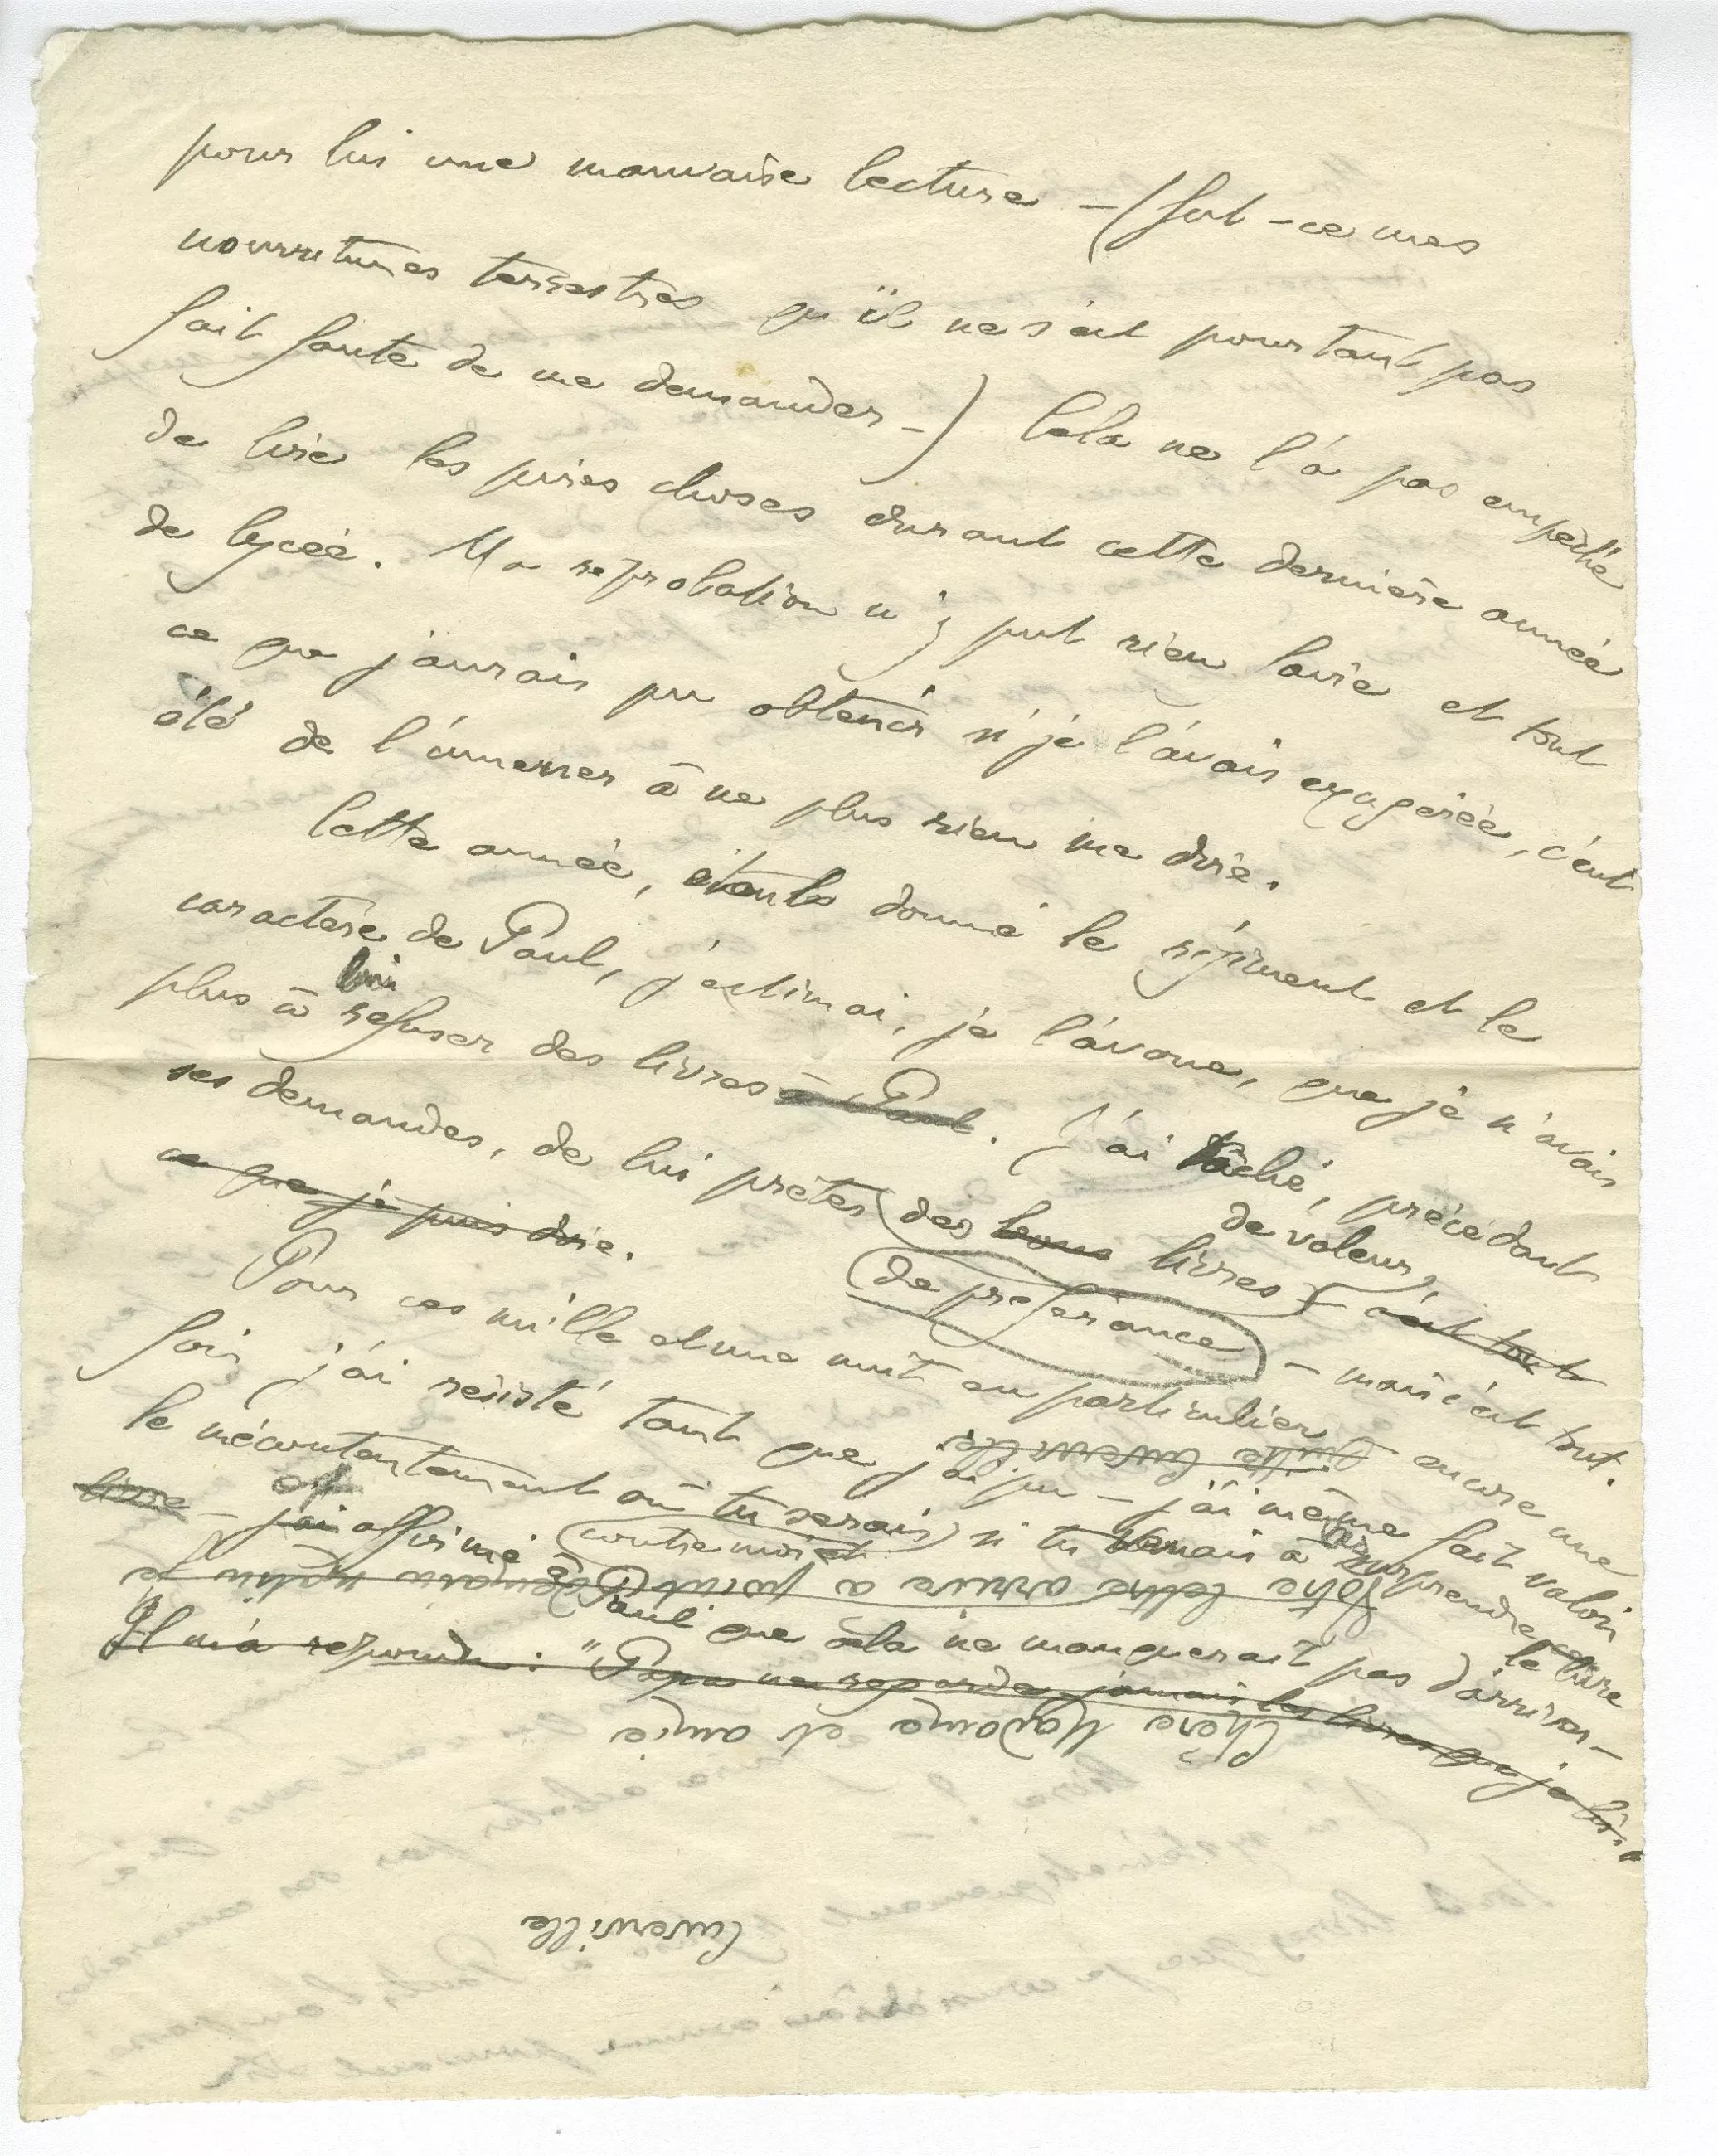 pour lui une mauvaise lecture – (fut-ce mes
nourritures terrestres qu'il ne s'est pourtant pas
fait faute de me demander –) Cela ne l'a pas empêché
de lire les pires choses durant cette dernière année
de lycée. Ma reprobation n'y put rien faire et tout
ce que j'aurais pu obtenir si je l'avais exagérée, c'eut
été de l'amener à ne plus rien me dire.
Cette année, étant donné le régiment et le
caractère de Paul, j'estimai, je l'avoue, que je n'avais
plus à lui refuser des livres à Paul. J'ai tâché, précédant
ses demandes, de lui prêter des bons livres de valeur, – c'est tout
ce que je puis dire. de preference – mais c'est tout.
Pour ces mille et une nuit en particulier encore une
fois j'ai résisté tant que j'ai pu – j'ai même fait valoir
le mécontentement où tu serais contre moi et si tu venais à surprendre le livre
livre – j'ai et affirmé à Paul que cela ne manquerait pas d'arriver –
Il m'a repondu : "Papa ne regarde jamais les livres que je lis."
Cuverville
Chère Madame et amie
Votre lettre arrive à point
Cuverville